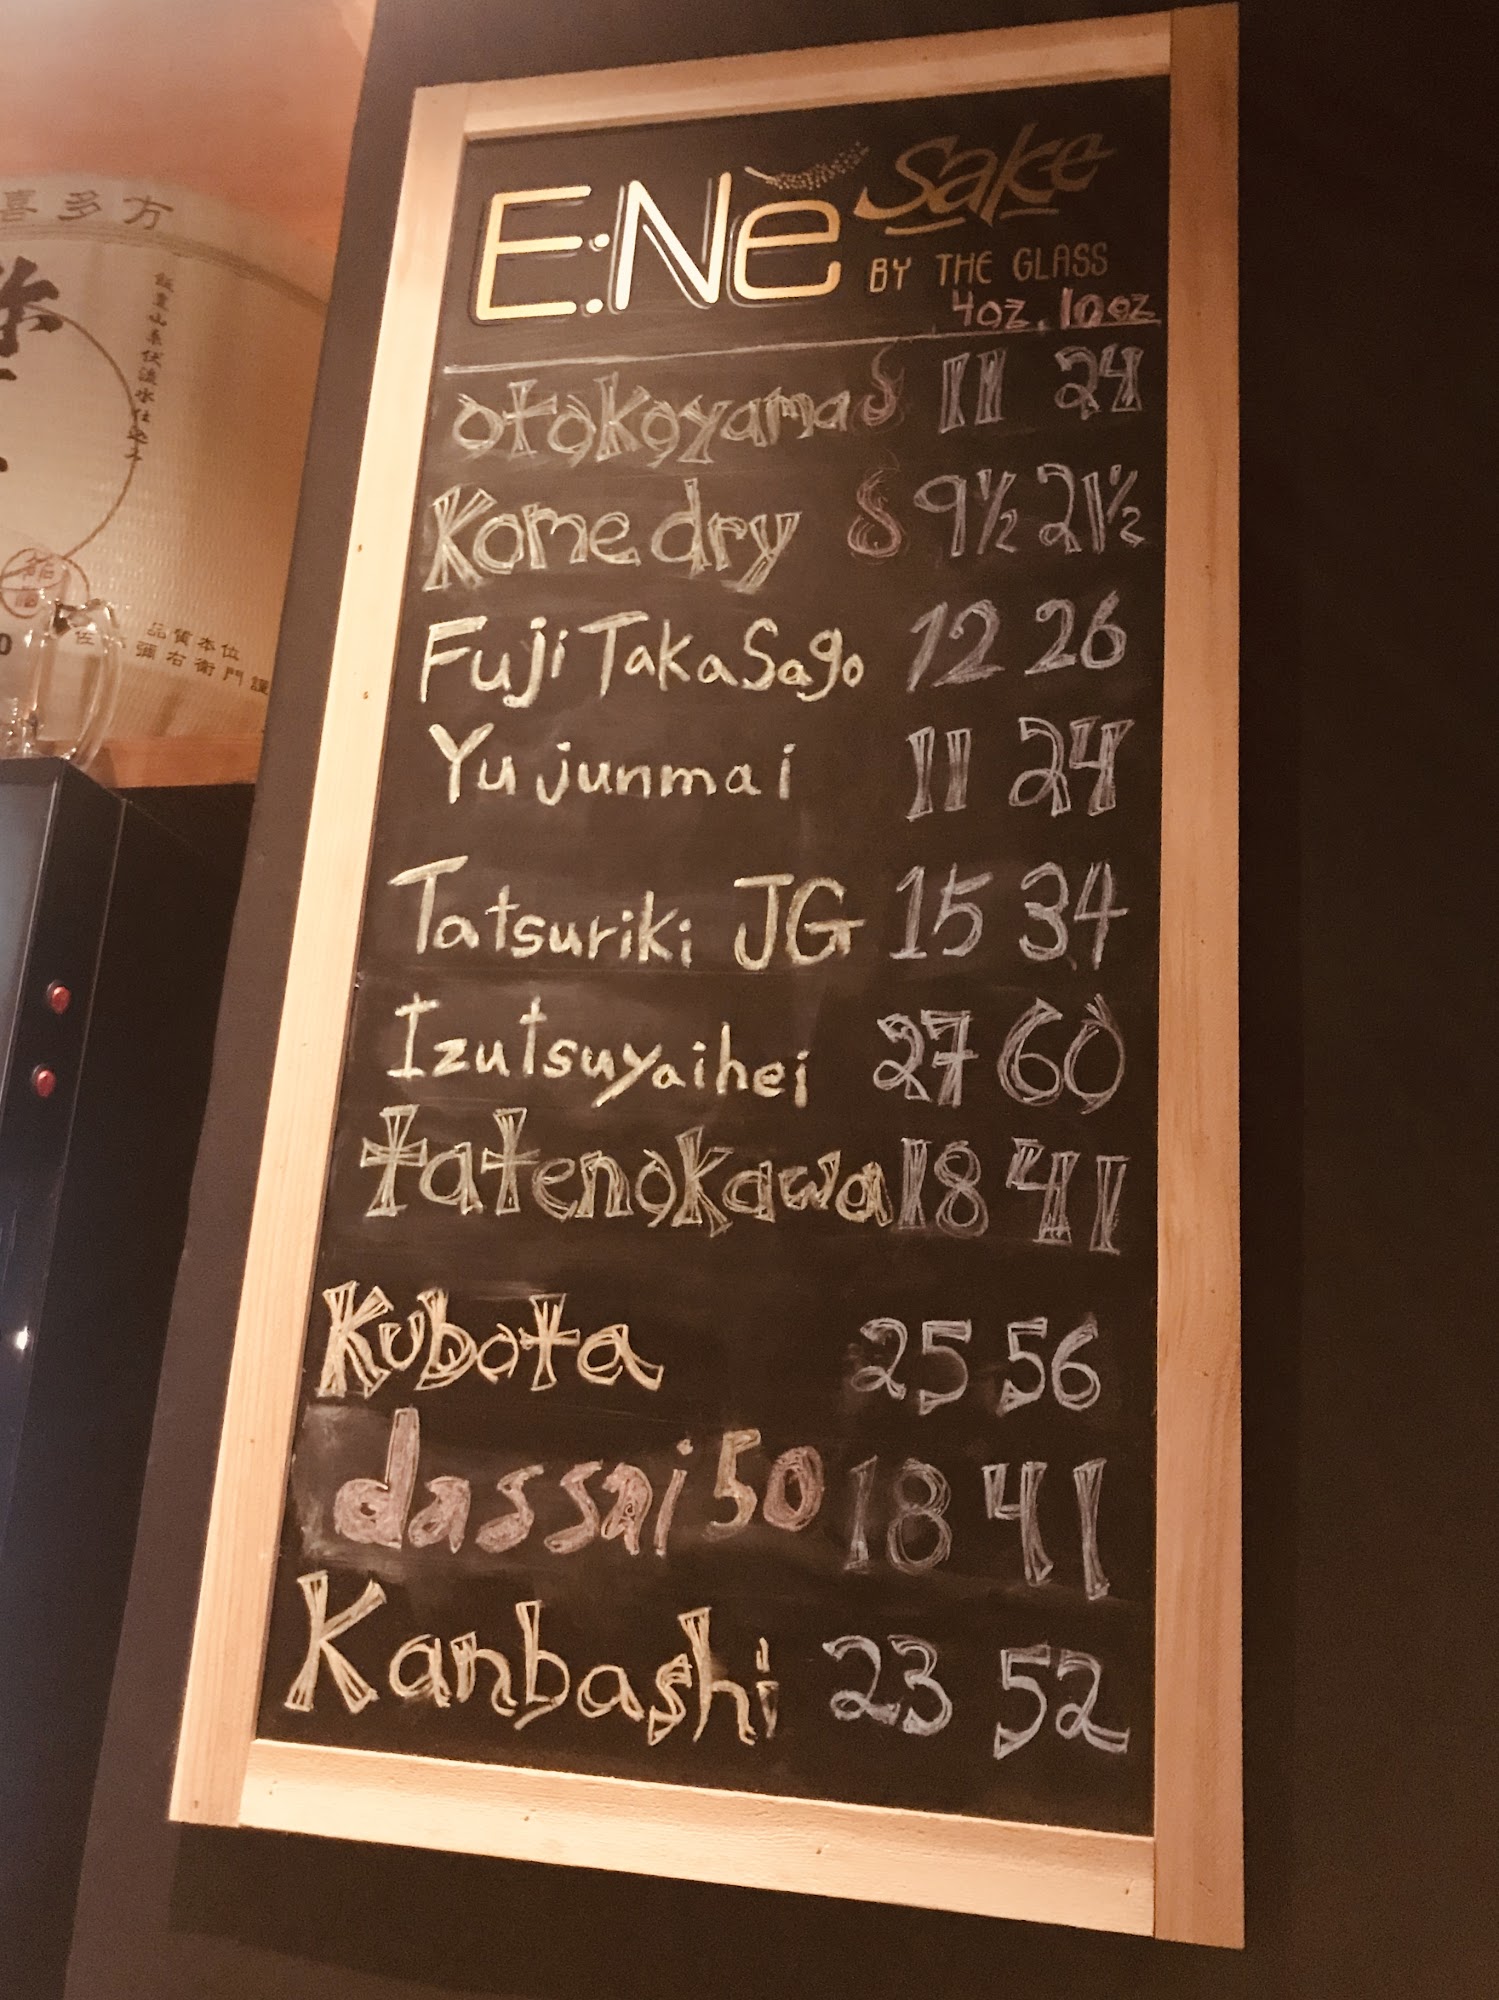 喜多方
飯豊山系伏流水仕込み
品質本位
E:Nê Sake
BY THE GLASS
4oz. 10oz
otokoyama 11 24
Kome dry 9½ 21½
Fuji TakaSago 12 26
Yu junmai 11 24
Tatsuriki JG 15 34
Izutsuyaihei 27 60
tatenokawa 18 41
Kubota 25 56
dassai 50 18 41
Kanbashi 23 52